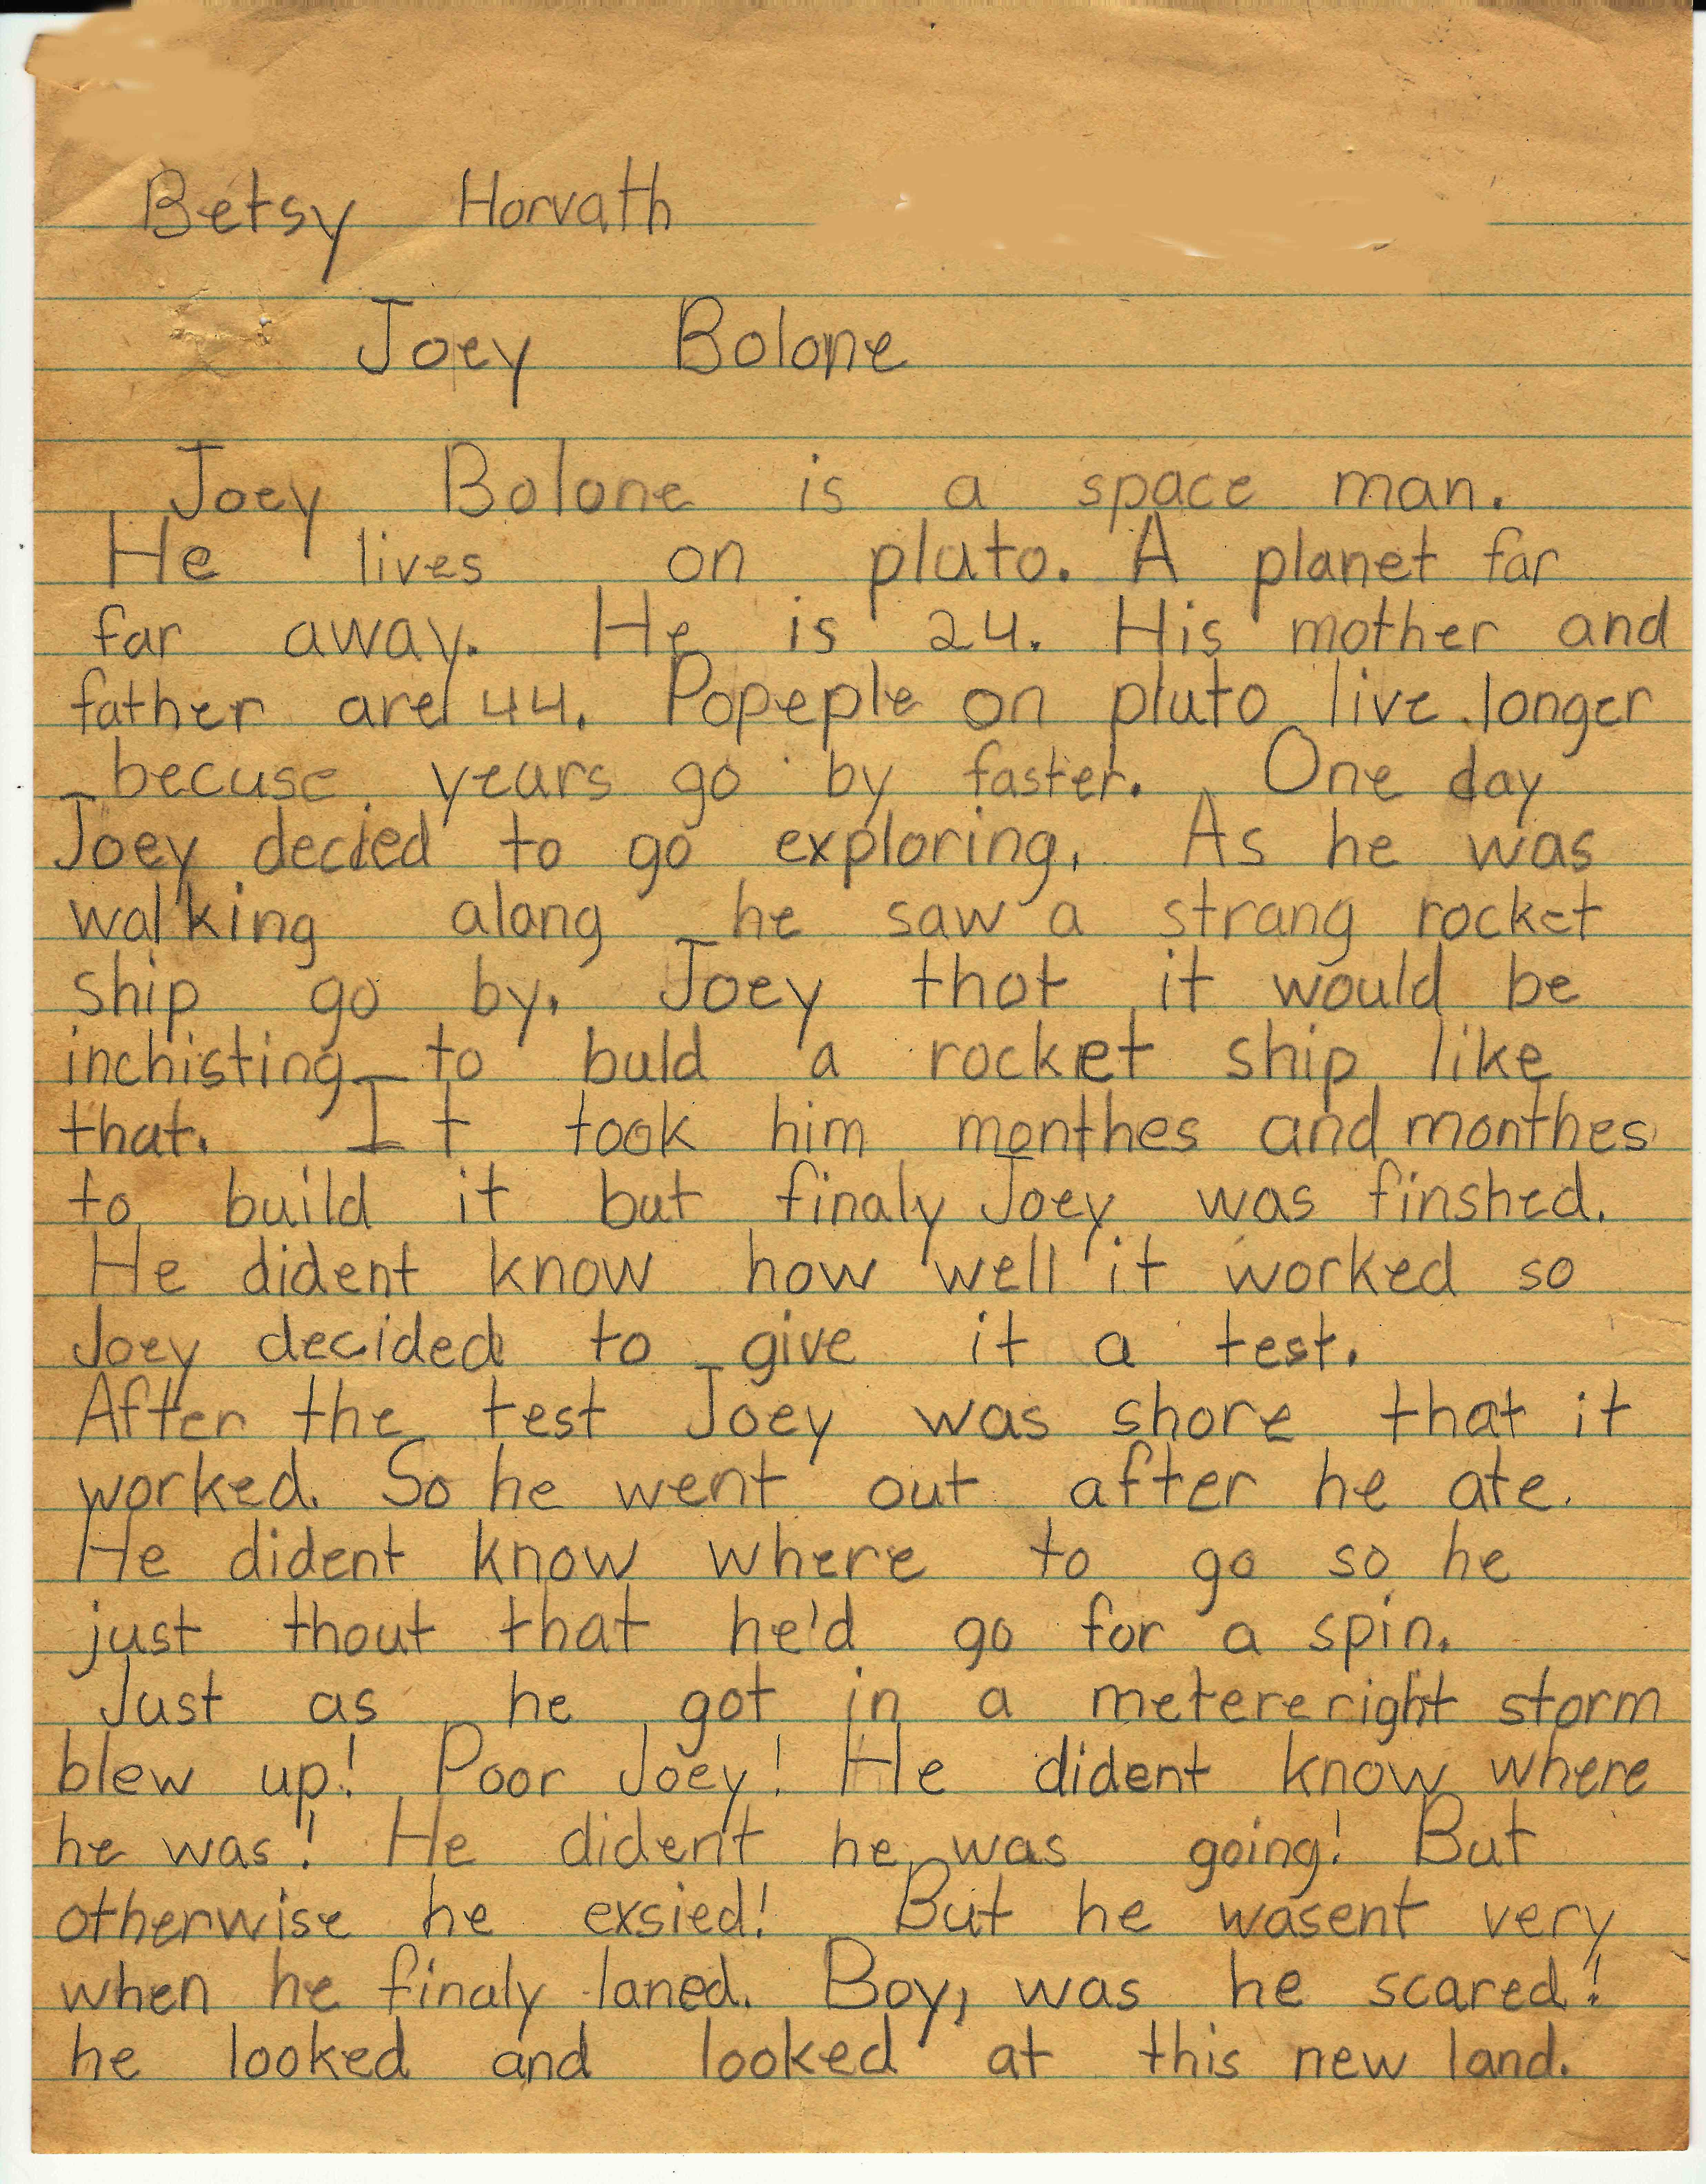 Betsy Horvath
Joey Bolone
Joey Bolone is a space man.
He lives on pluto. A planet far
far away. He is 24. His mother and
father are 44. Popeple on pluto live longer
becuse years go by faster. One day
Joey decied to go exploring. As he was
walking alang he saw a strang rocket
ship go by. Joey thot it would be
inchisting to buld a rocket ship like
that. It took him monthes and monthes
to build it but finaly Joey was finshed.
He dident know how well it worked so
Joey decided to give it a test.
After the test Joey was shore that it
worked. So he went out after he ate.
He dident know where to go so he
just thout that he'd go for a spin.
Just as he got in a metereright storm
blew up! Poor Joey! He dident know where
he was! He dident he was going! But
otherwise he exsied! But he wasent very
when he finaly laned. Boy, was he scared!
he looked and looked at this new land.